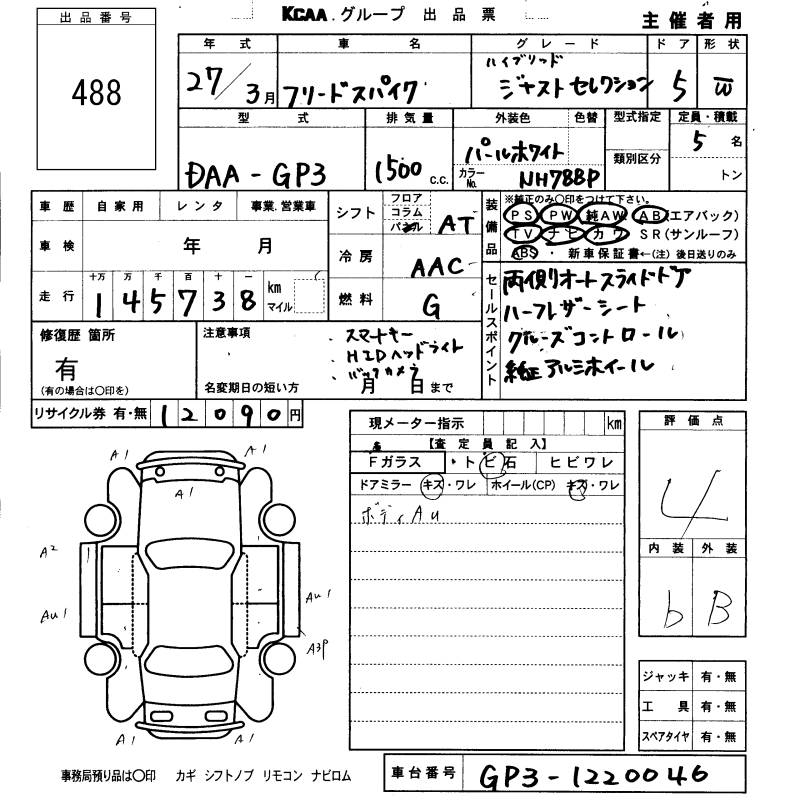 KCAA.グループ 出品票
主催者用
出品番号
488
年式 車名 グレード ドア 形状
27/3月 フリードスパイク ハイブリッド ジャストセレクション 5 W
型式 排気量 外装色 色替 型式指定 定員・積載
DAA-GP3 1500 c.c. パールホワイト カラーNo. NH788P 類別区分 5名 トン
車歴 自家用 レンタ 事業.営業車
車検 年 月
走行 十万 万 千 百 十 一
1 4 5 7 3 8 km マイル
シフト フロア コラム パネル AT
冷房 AAC
燃料 G
装備品 ※純正のみ○印をつけて下さい。
PS PW 純AW AB(エアバック)
TV ナビ カワ SR(サンルーフ)
ABS ・ 新車保証書←(注)後日送りのみ
セールスポイント
両側オートスライドドア
ハーフレザーシート
クルーズコントロール
純正アルミホイール
修復歴 箇所
有
(有の場合は○印を)
注意事項
・スマートキー
・HIDヘッドライト
・バックカメラ
名変期日の短い方 月 日まで
リサイクル券 有・無 12090円
現メーター指示 km
【査定員記入】
Fガラス ・トビ石 ヒビワレ
ドアミラー キズ・ワレ ホイール(CP) キズ・ワレ
ボディAu
評価点
4
内装 外装
b B
ジャッキ 有・無
工具 有・無
スペアタイヤ 有・無
A1 A1
A1
A2
Au1 Au1
A3P
A1 A1
事務局預り品は○印 カギ シフトノブ リモコン ナビロム
車台番号 GP3-1220046